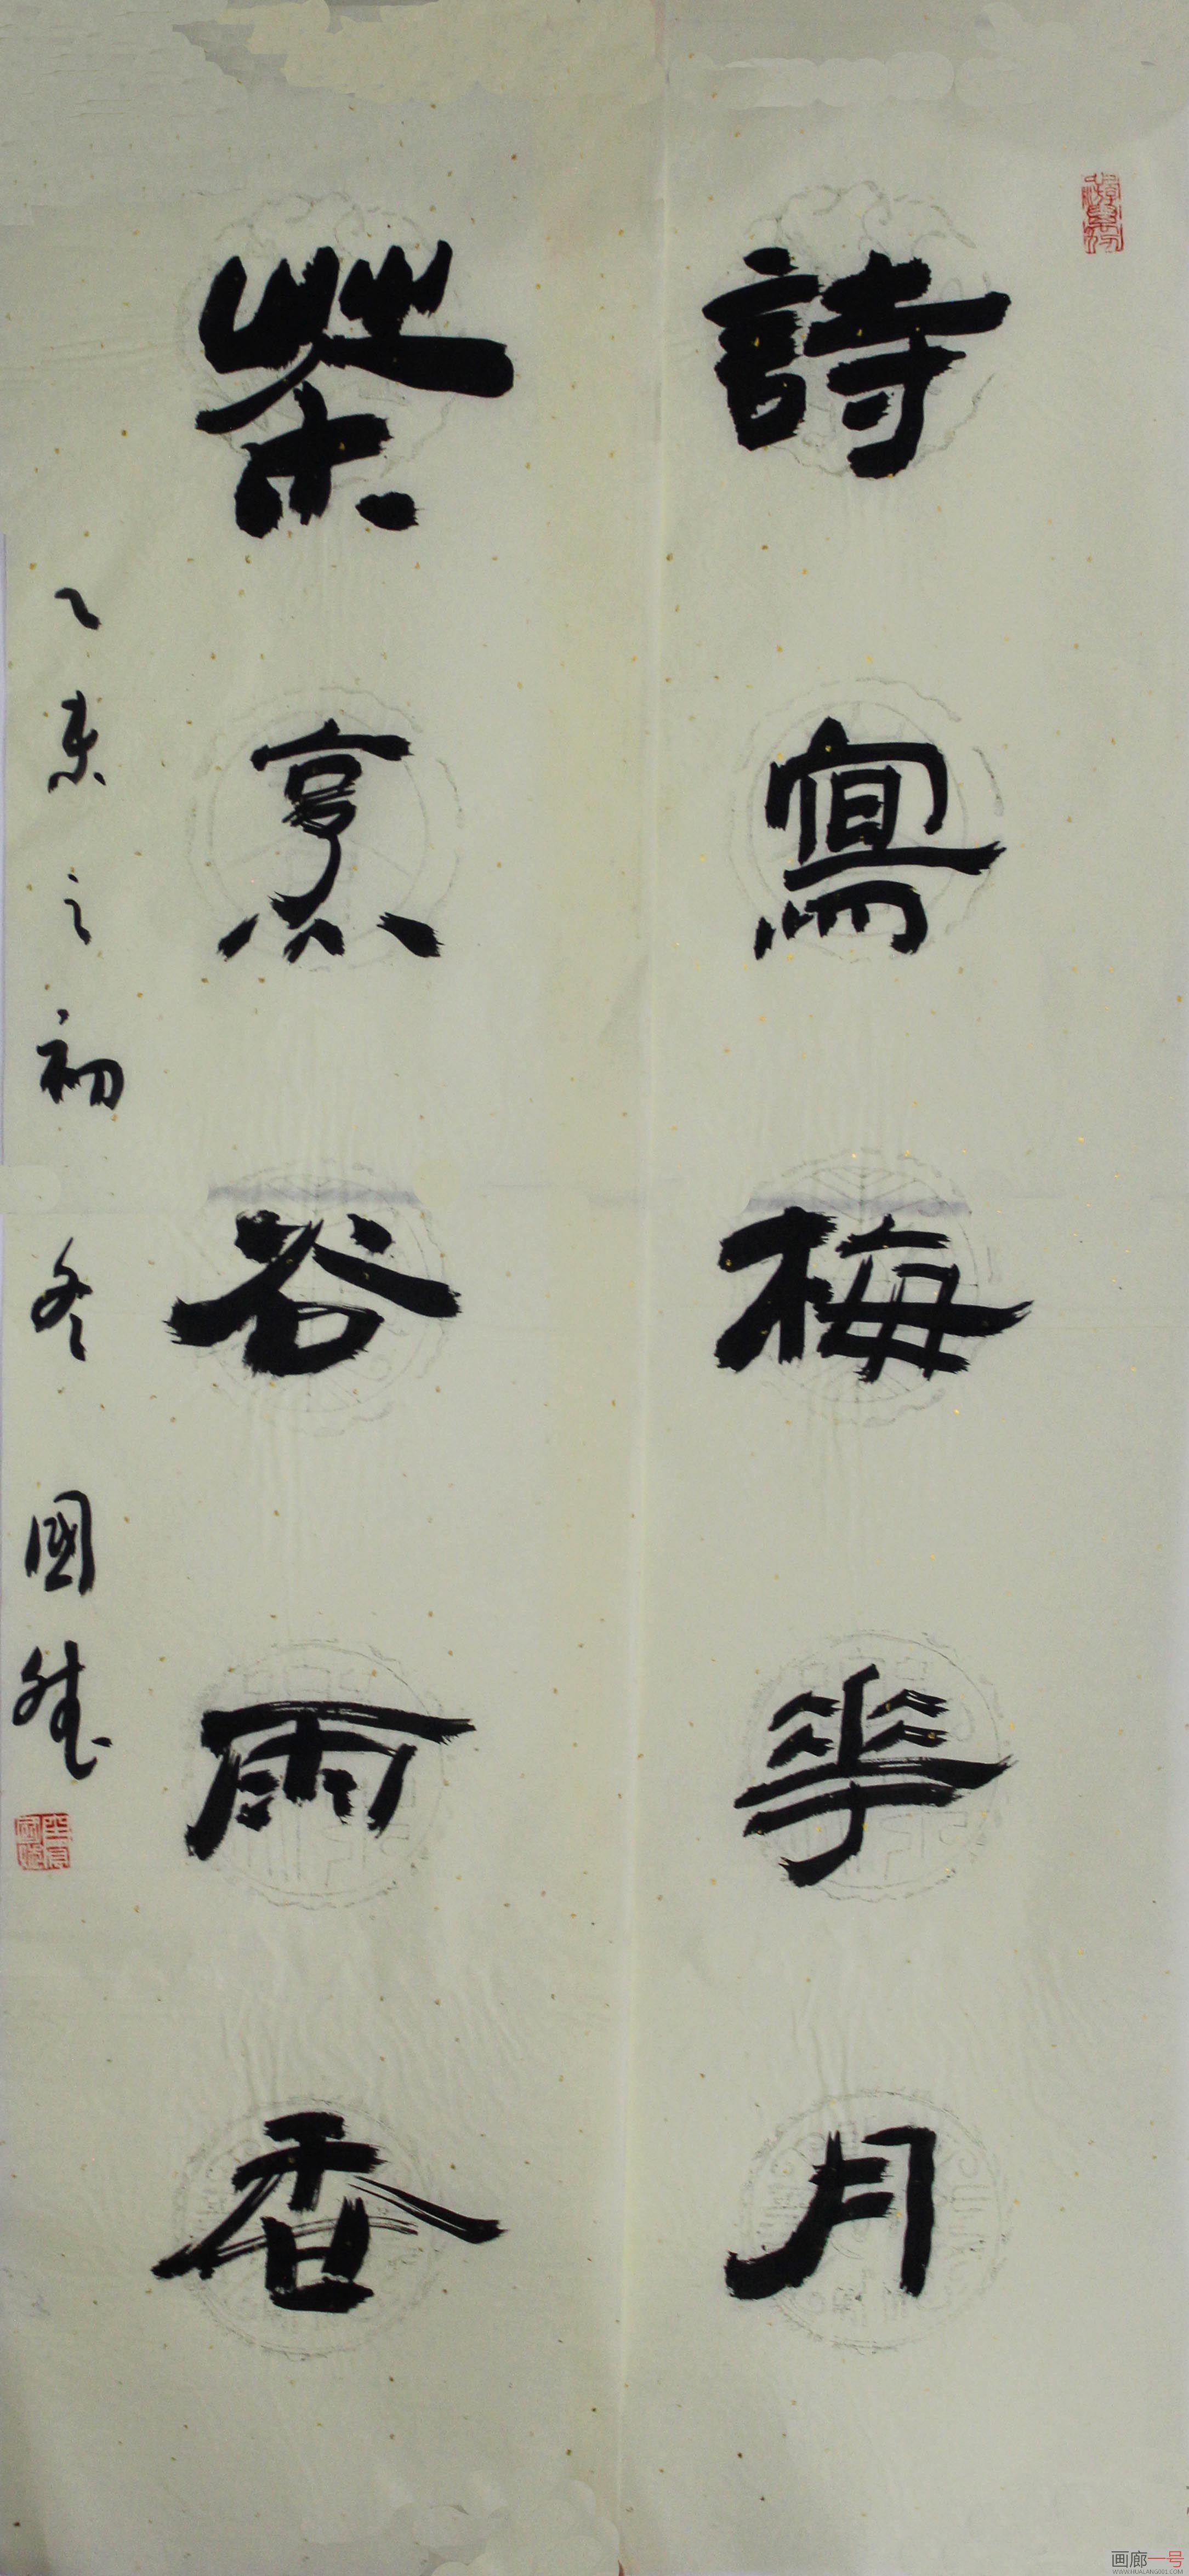 詩寫梅花月
茶烹谷雨香
乙未之初冬 國斌
画廊一号
WWW.HUALANG001.COM